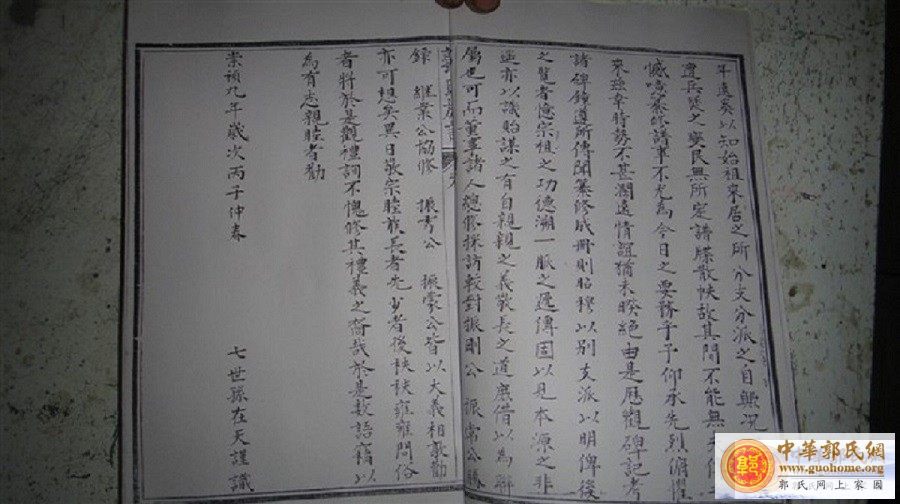 年遠矣以知始祖來居之所分支分派之自無況
遭兵燹之變民無所定譜牒散帙故其間不能無
憾嗟纂修譜牟不尤為今日之要務乎予仰承先烈俯
來雖幸時勢不甚濶遠情誼猶未睽絕由是歷觀碑記考
諸碑鐘遵所傳聞纂修成冊則昭穆以別支派以明俾後
之覽者憶宗祖之功德溯一脈之遞傳固以見本源之非
亦以識貽謀之有自親親之義敬長之道庶借以為聯
屬也可而董事諸人總修採訪較對振剛公 振常公
錄 繼業公協修 振秀公 振蒙公皆以大義相敦勸
亦可想矣異日敬宗睦族長者先少者後秩秩雍雍問俗
者將於是觀禮詞不愧修其禮義之裔哉於是數語藉以
為有志親睦者勸
崇禎九年歲次丙子仲春
七世孫在天謹識
中華郭氏網
www.guohome.org
郭氏網上家園